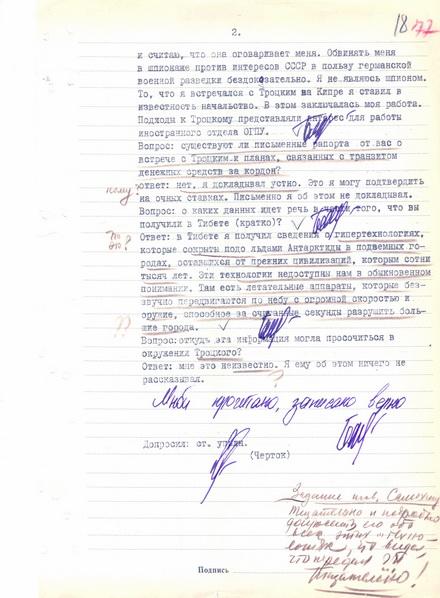 2.
18
77
и считаю, что она оговаривает меня. Обвинять меня
в шпионаже против интересов СССР в пользу германской
военной разведки бездоказательно. Я не являюсь шпионом.
То, что я встречался с Троцким на Кипре я ставил в
известность начальство. В этом заключалась моя работа.
Подходы к Троцкому представляли интерес для работы
иностранного отдела ОГПУ.
Вопрос: существуют ли письменные рапорта от вас о
встрече с Троцким и планах, связанных с транзитом
денежных средств за кордон?
кому?
ответ: нет, я докладывал устно. Это я могу подтвердить
на очных ставках. Письменно я об этом не докладывал.
Вопрос: о каких данных идет речь в того, что вы
получили в Тибете (кратко)?
Ответ: в Тибете я получил сведения о гипертехнологиях,
которые сокрыты подо льдами Антарктиды в подземных го-
родах, оставшихся от прежних цивилизаций, которым сотни
тысяч лет. Эти технологии недоступны нам в обыкновенном
понимании. Там есть летательные аппараты, которые без-
звучно передвигаются по небу с огромной скоростью и
оружие, способное за считанные секунды разрушить боль-
??
шие города.
Вопрос:откудь эта информация могла просочиться в
окружении Троцкого?
Ответ: мне это неизвестно. Я ему об этом ничего не
рассказывал.
?
Мной прочитано, записано верно
Допросил: ст. упулн.
(Черток)
Задание
Тщательно и подробно
допросить его обо
всех этих
Тщательно!
Подпись